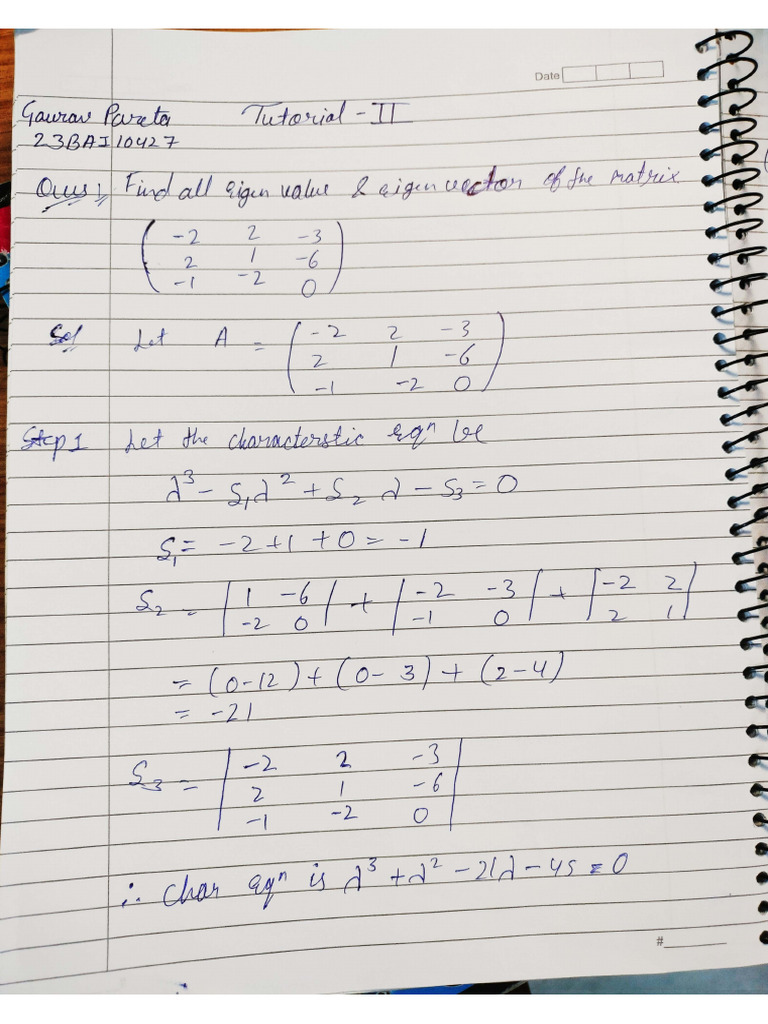 Date
Gaurav Pareta Tutorial - II
23BAI10427
Ques: Find all eigen value & eigen vector of the matrix
-2 2 -3
2 1 -6
-1 -2 0
Sol Let A = ( -2 2 -3
2 1 -6
-1 -2 0 )
Step 1 Let the characterstic eqⁿ be
λ³ - S₁λ² + S₂ λ - S₃ = 0
S₁ = -2 + 1 + 0 = -1
S₂ = | 1 -6 | + | -2 -3 | + | -2 2 |
| -2 0 | | -1 0 | | 2 1 |
= (0-12) + (0-3) + (2-4)
= -21
S₃ = | -2 2 -3 |
| 2 1 -6 |
| -1 -2 0 |
∴ Char eqⁿ is λ³ + λ² - 21λ - 45 = 0
#